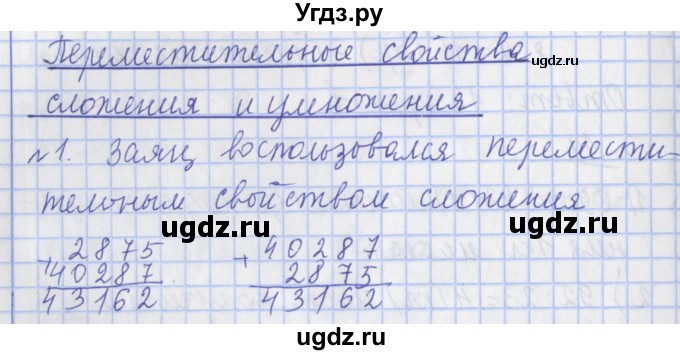 Угdз.ру
Переместительные свойства
ugdz.ru
сложения и умножения
ugdz.ru
№1. Заяц воспользовался перемести-
тельным свойством сложения
ugdz.ru
ugdz.ru
+ 2875 + 40287
40287 2875
43162 43162
ugdz.ru
ugdz.ru
ugdz.ru